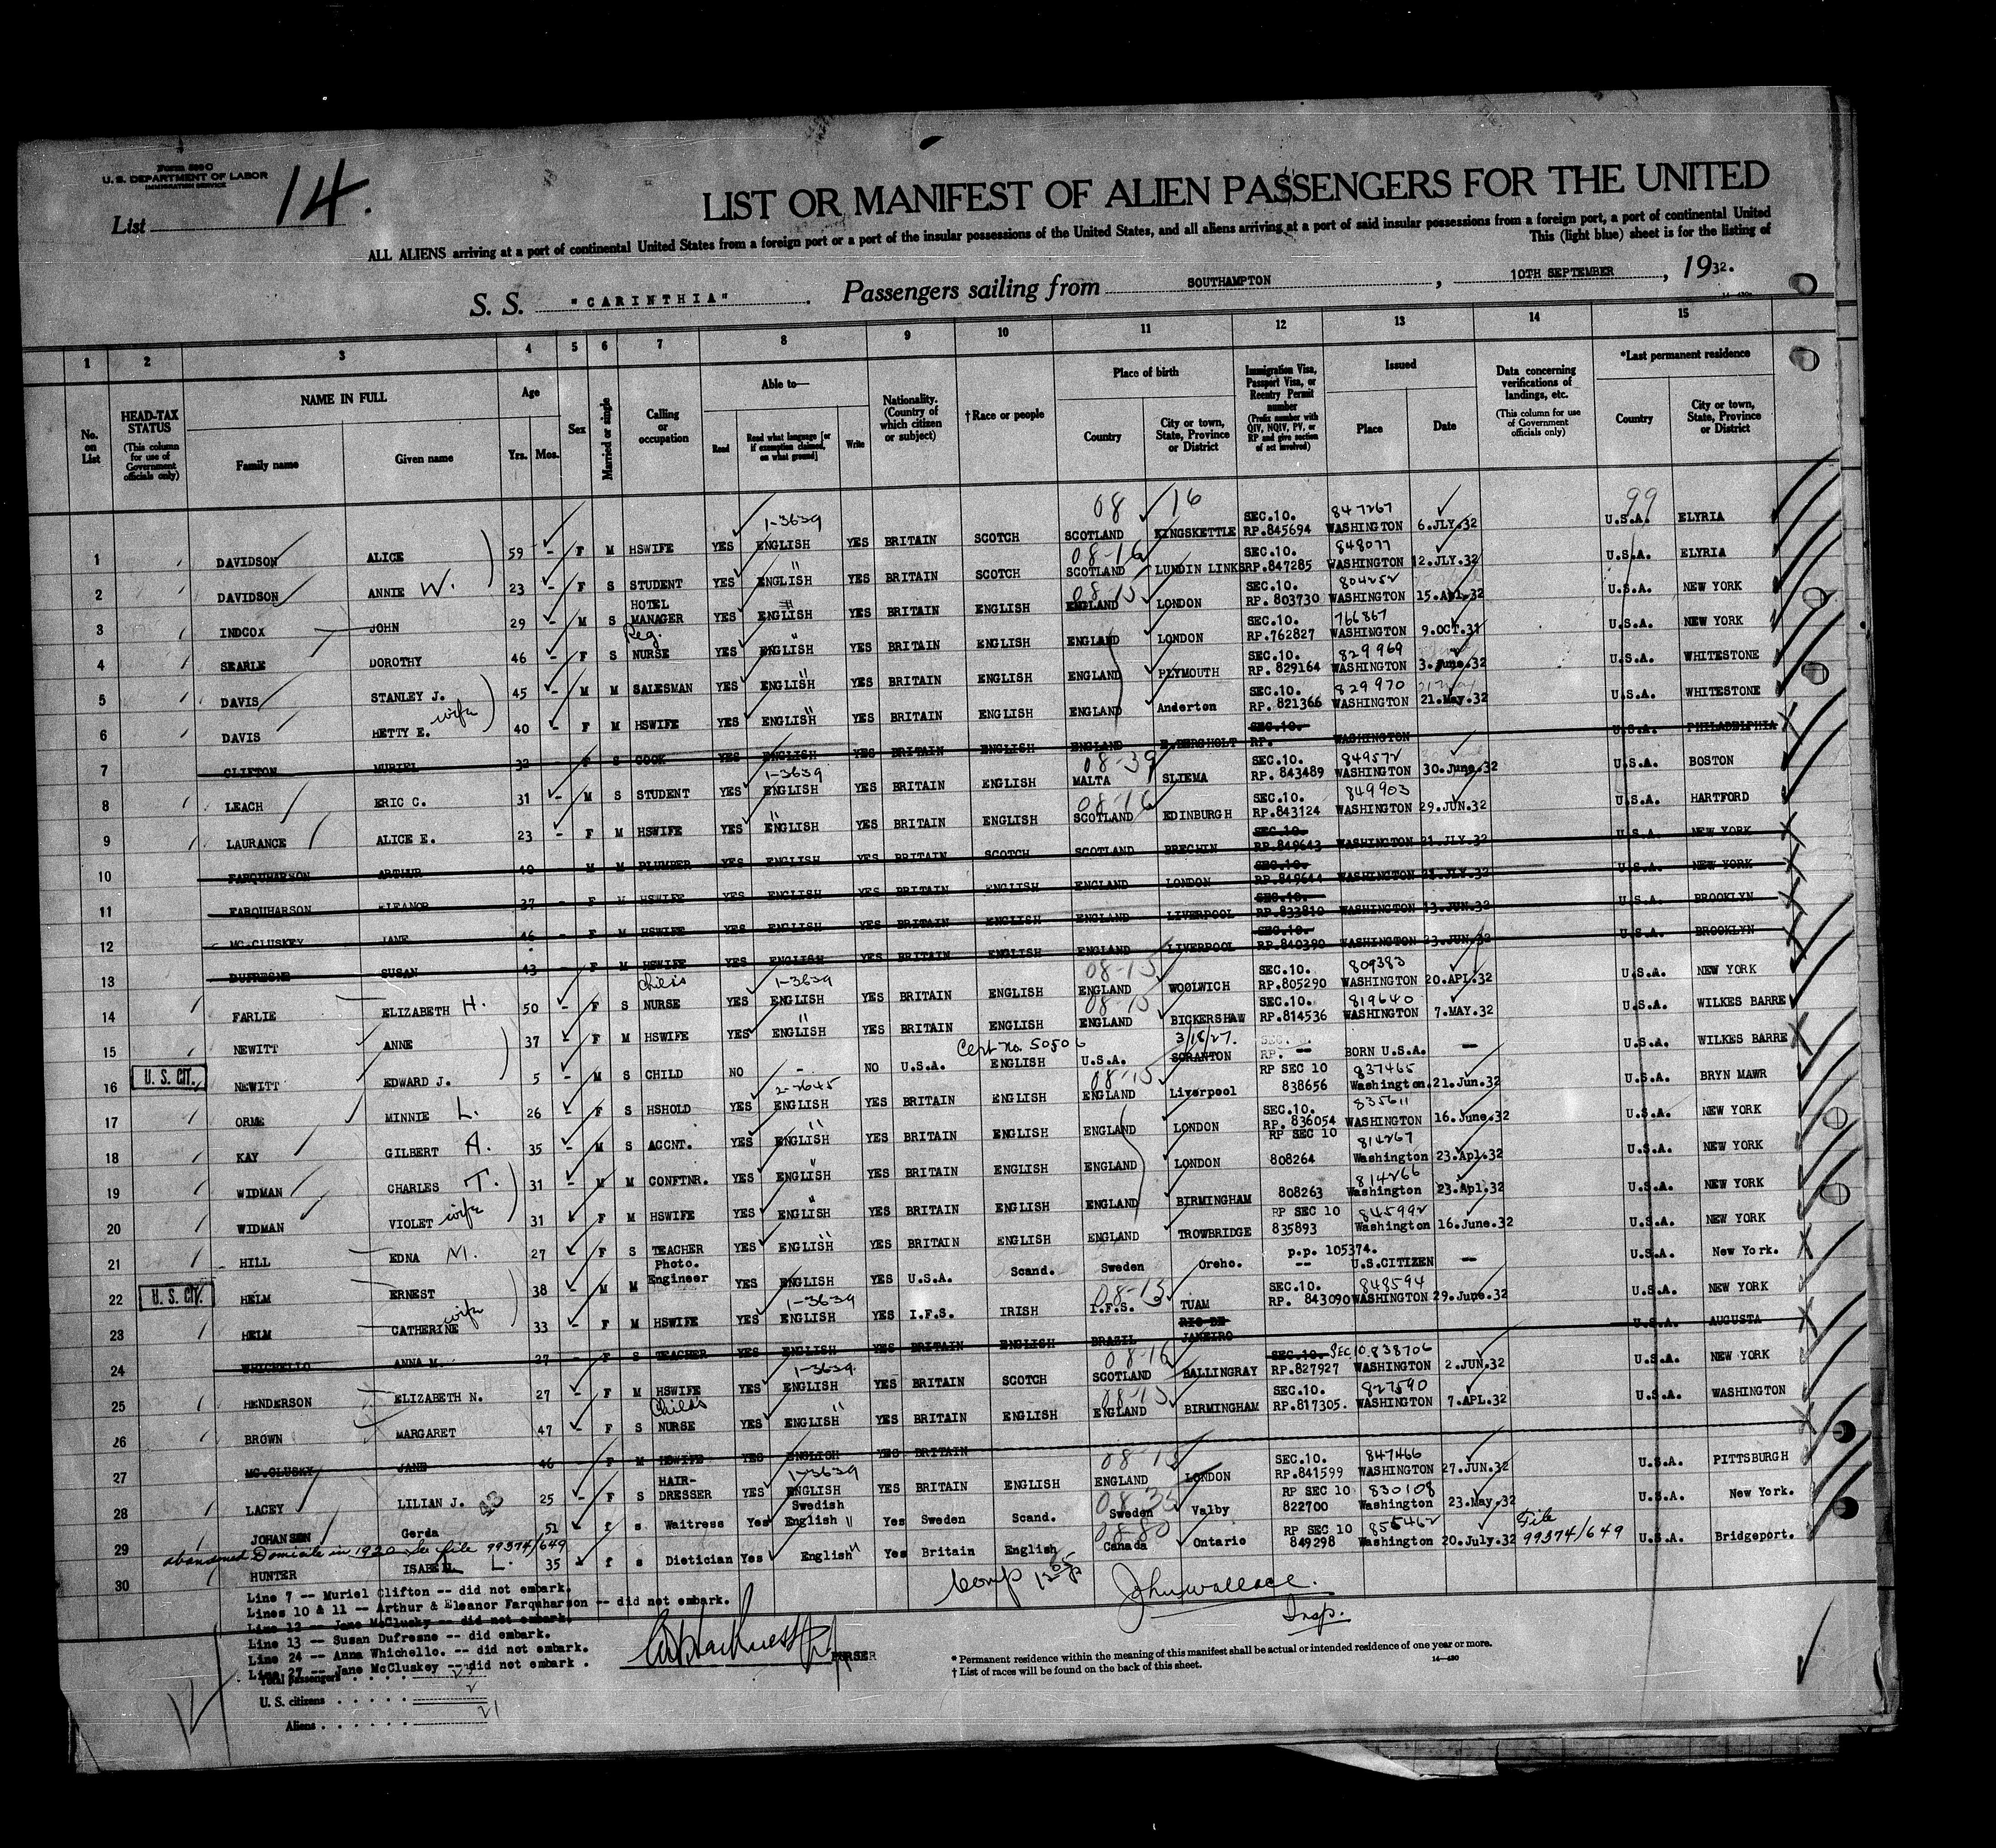 Form 500 C
U. S. DEPARTMENT OF LABOR
IMMIGRATION SERVICE
List 14.
LIST OR MANIFEST OF ALIEN PASSENGERS FOR THE UNITED
ALL ALIENS arriving at a port of continental United States from a foreign port or a port of the insular possessions of the United States, and all aliens arriving at a port of said insular possessions from a foreign port, a port of continental United
This (light blue) sheet is for the listing of
S. S. "CARINTHIA" . Passengers sailing from SOUTHAMPTON , 10TH SEPTEMBER , 1932.
1 2 3 4 5 6 7 8 9 10 11 12 13 14 15
No. on List
HEAD-TAX STATUS (This column for use of Government officials only)
NAME IN FULL Family name Given name
Age Yrs. Mos.
Sex
Married or single
Calling or occupation
Able to— Read Read what language [or if exemption claimed, on what ground] Write
Nationality. (Country of which citizen or subject)
†Race or people
Place of birth Country City or town, State, Province or District
Immigration Visa, Passport Visa, or Reentry Permit number (Prefix number with QIV, NQIV, PV, or RP and give section of act involved)
Issued Place Date
Data concerning verifications of landings, etc. (This column for use of Government officials only)
*Last permanent residence Country City or town, State, Province or District
1 DAVIDSON ALICE 59 - F M HSWIFE YES 1-3639 ENGLISH YES BRITAIN SCOTCH 08 16 SCOTLAND KINGSKETTLE SEC.10. RP.845694 847267 WASHINGTON 6.JLY.32 99 U.S.A. ELYRIA
2 DAVIDSON ANNIE W. 23 - F S STUDENT YES ENGLISH YES BRITAIN SCOTCH 08-16 SCOTLAND LUNDIN LINKS SEC.10. RP.847285 848077 WASHINGTON 12.JLY.32 U.S.A. ELYRIA
3 INDCOX JOHN 29 - M S HOTEL MANAGER YES ENGLISH YES BRITAIN ENGLISH 08-15 ENGLAND LONDON SEC.10. RP. 803730 804252 WASHINGTON 15.Apl.32 U.S.A. NEW YORK
4 SEARLE DOROTHY 46 - F S Reg. NURSE YES ENGLISH YES BRITAIN ENGLISH ENGLAND LONDON SEC.10. RP.762827 766867 WASHINGTON 9.OCT.31 U.S.A. NEW YORK
5 DAVIS STANLEY J. 45 - M M SALESMAN YES ENGLISH YES BRITAIN ENGLISH ENGLAND PLYMOUTH SEC.10. RP. 829164 829969 WASHINGTON 3.June.32 U.S.A. WHITESTONE
6 DAVIS HETTY E. wife 40 - F M HSWIFE YES ENGLISH YES BRITAIN ENGLISH ENGLAND Anderton SEC.10. RP. 821366 829970 WASHINGTON 21.May.32 U.S.A. WHITESTONE
7 CLIFTON MURIEL 32 - F S COOK YES ENGLISH YES BRITAIN ENGLISH ENGLAND E.BERGHOLT SEC.10. RP. WASHINGTON U.S.A. PHILADELPHIA
8 LEACH ERIC C. 31 - M S STUDENT YES 1-3639 ENGLISH YES BRITAIN ENGLISH 08-39 MALTA SLIEMA SEC.10. RP. 843489 849572 WASHINGTON 30.June.32 U.S.A. BOSTON
9 LAURANCE ALICE E. 23 - F M HSWIFE YES ENGLISH YES BRITAIN ENGLISH 08-16 SCOTLAND EDINBURGH SEC.10. RP.843124 849903 WASHINGTON 29.JUN.32 U.S.A. HARTFORD
10 FARQUHARSON ARTHUR 40 M M PLUMBER YES ENGLISH YES BRITAIN SCOTCH SCOTLAND BRECHIN SEC.10. RP.849643 WASHINGTON 21.JLY.32 U.S.A. NEW YORK
11 FARQUHARSON ELEANOR 37 - F M HSWIFE YES ENGLISH YES BRITAIN ENGLISH ENGLAND LONDON SEC.10. RP.849644 WASHINGTON 21.JLY.32 U.S.A. NEW YORK
12 MC.CLUSKEY JANE 46 - F M HSWIFE YES ENGLISH YES BRITAIN ENGLISH ENGLAND LIVERPOOL SEC.10. RP.833810 WASHINGTON 13.JUN.32 U.S.A. BROOKLYN
13 DUFRESNE SUSAN 43 - F M HSWIFE YES ENGLISH YES BRITAIN ENGLISH ENGLAND LIVERPOOL SEC.10. RP.840390 WASHINGTON 23.JUN.32 U.S.A. BROOKLYN
14 FARLIE ELIZABETH H. 50 - F S Child's NURSE YES 1-3639 ENGLISH YES BRITAIN ENGLISH 08-15 ENGLAND WOOLWICH SEC.10. RP.805290 809383 WASHINGTON 20.APL.32 U.S.A. NEW YORK
15 NEWITT ANNE 37 - F M HSWIFE YES ENGLISH YES BRITAIN ENGLISH 08-15 ENGLAND BICKERSHAW SEC.10. RP.814536 819640 WASHINGTON 7.MAY.32 U.S.A. WILKES BARRE
16 U. S. CIT. NEWITT EDWARD J. 5 - M S CHILD NO - NO U.S.A. Cept no. 50506 ENGLISH U.S.A. 3/18/27. SCRANTON RP. -- BORN U.S.A. -- U.S.A. WILKES BARRE
17 ORME MINNIE L. 26 - F S HSHOLD YES 2-2645 ENGLISH YES BRITAIN ENGLISH 08-15 ENGLAND Liverpool RP SEC 10 838656 837465 Washington. 21.Jun.32 U.S.A. BRYN MAWR
18 KAY GILBERT A. 35 - M S ACCNT. YES ENGLISH YES BRITAIN ENGLISH ENGLAND LONDON SEC.10. RP. 836054 835611 WASHINGTON 16.June.32 U.S.A. NEW YORK
19 WIDMAN CHARLES T. 31 - M M CONFTNR. YES ENGLISH YES BRITAIN ENGLISH ENGLAND LONDON RP SEC 10 808264 814267 Washington 23.Apl.32 U.S.A. NEW YORK
20 WIDMAN VIOLET wife 31 F M HSWIFE YES ENGLISH YES BRITAIN ENGLISH ENGLAND BIRMINGHAM 808263 814266 Washington 23.Apl.32 U.S.A. NEW YORK
21 HILL EDNA M. 27 F S TEACHER YES ENGLISH YES BRITAIN ENGLISH ENGLAND TROWBRIDGE RP SEC 10 835893 845992 Washington 16.June.32 U.S.A. NEW YORK
22 U. S. CIT. HELM ERNEST 38 M M Photo. Engineer YES ENGLISH YES U.S.A. Scand. Sweden Oreho. p.p. 105374. -- U.S.CITIZEN -- U.S.A. New York.
23 HELM CATHERINE wife 33 - F M HSWIFE YES 1-3639 ENGLISH YES I.F.S. IRISH 08-13 I.F.S. TUAM SEC.10. RP. 843090 848594 WASHINGTON 29.June.32 U.S.A. NEW YORK
24 WHICHELLO ANNA M. 27 - F S TEACHER YES ENGLISH YES BRITAIN ENGLISH BRASIL RIO DE JANEIRO U.S.A. AUGUSTA
25 HENDERSON ELIZABETH N. 27 - F M HSWIFE YES 1-3639 ENGLISH YES BRITAIN SCOTCH 08-16 SCOTLAND BALLINGRAY SEC.10. SEC.10. RP.827927 838706 WASHINGTON 2.JUN.32 U.S.A. NEW YORK
26 BROWN MARGARET 47 F S Child's NURSE YES ENGLISH YES BRITAIN ENGLISH 08-15 ENGLAND BIRMINGHAM SEC.10. RP.817305. 827590 WASHINGTON 7.APL.32 U.S.A. WASHINGTON
27 MC.CLUSKY JANE 46 - F M HSWIFE YES ENGLISH YES BRITAIN
28 LACEY LILIAN J. 25 - F S HAIR-DRESSER YES 1-3639 ENGLISH YES BRITAIN ENGLISH 08-15 ENGLAND LONDON SEC.10. RP.841599 847466 WASHINGTON 27.JUN.32 U.S.A. PITTSBURGH
29 JOHANSEN Gerda 43 51 f s Waitress Yes Swedish English Yes Sweden Scand. 08 35 Sweden Valby RP SEC 10 822700 830108 Washington 23.May.32 U.S.A. New York.
abandoned Domicile in 1920 See file 99374/649
30 HUNTER ISABEL L. 35 f s Dietician Yes English Yes Britain English 08-80 Canada Ontario RP SEC 10 849298 Washington 20.July.32 File 99374/649 U.S.A. Bridgeport.
Line 7 -- Muriel Clifton -- did not embark.
Lines 10 & 11 -- Arthur & Eleanor Farquharson -- did not embark.
Line 12 -- Jane McClusky -- did not embark.
Line 13 -- Susan Dufresne -- did embark.
Line 24 -- Anna Whichello. -- did not embark.
Line 27 -- Jane McCluskey -- did not embark .
Total passengers
U. S. citizens 2
Aliens 21
PURSER
John Wallace.
Insp.
* Permanent residence within the meaning of this manifest shall be actual or intended residence of one year or more.
† List of races will be found on the back of this sheet.
14—430